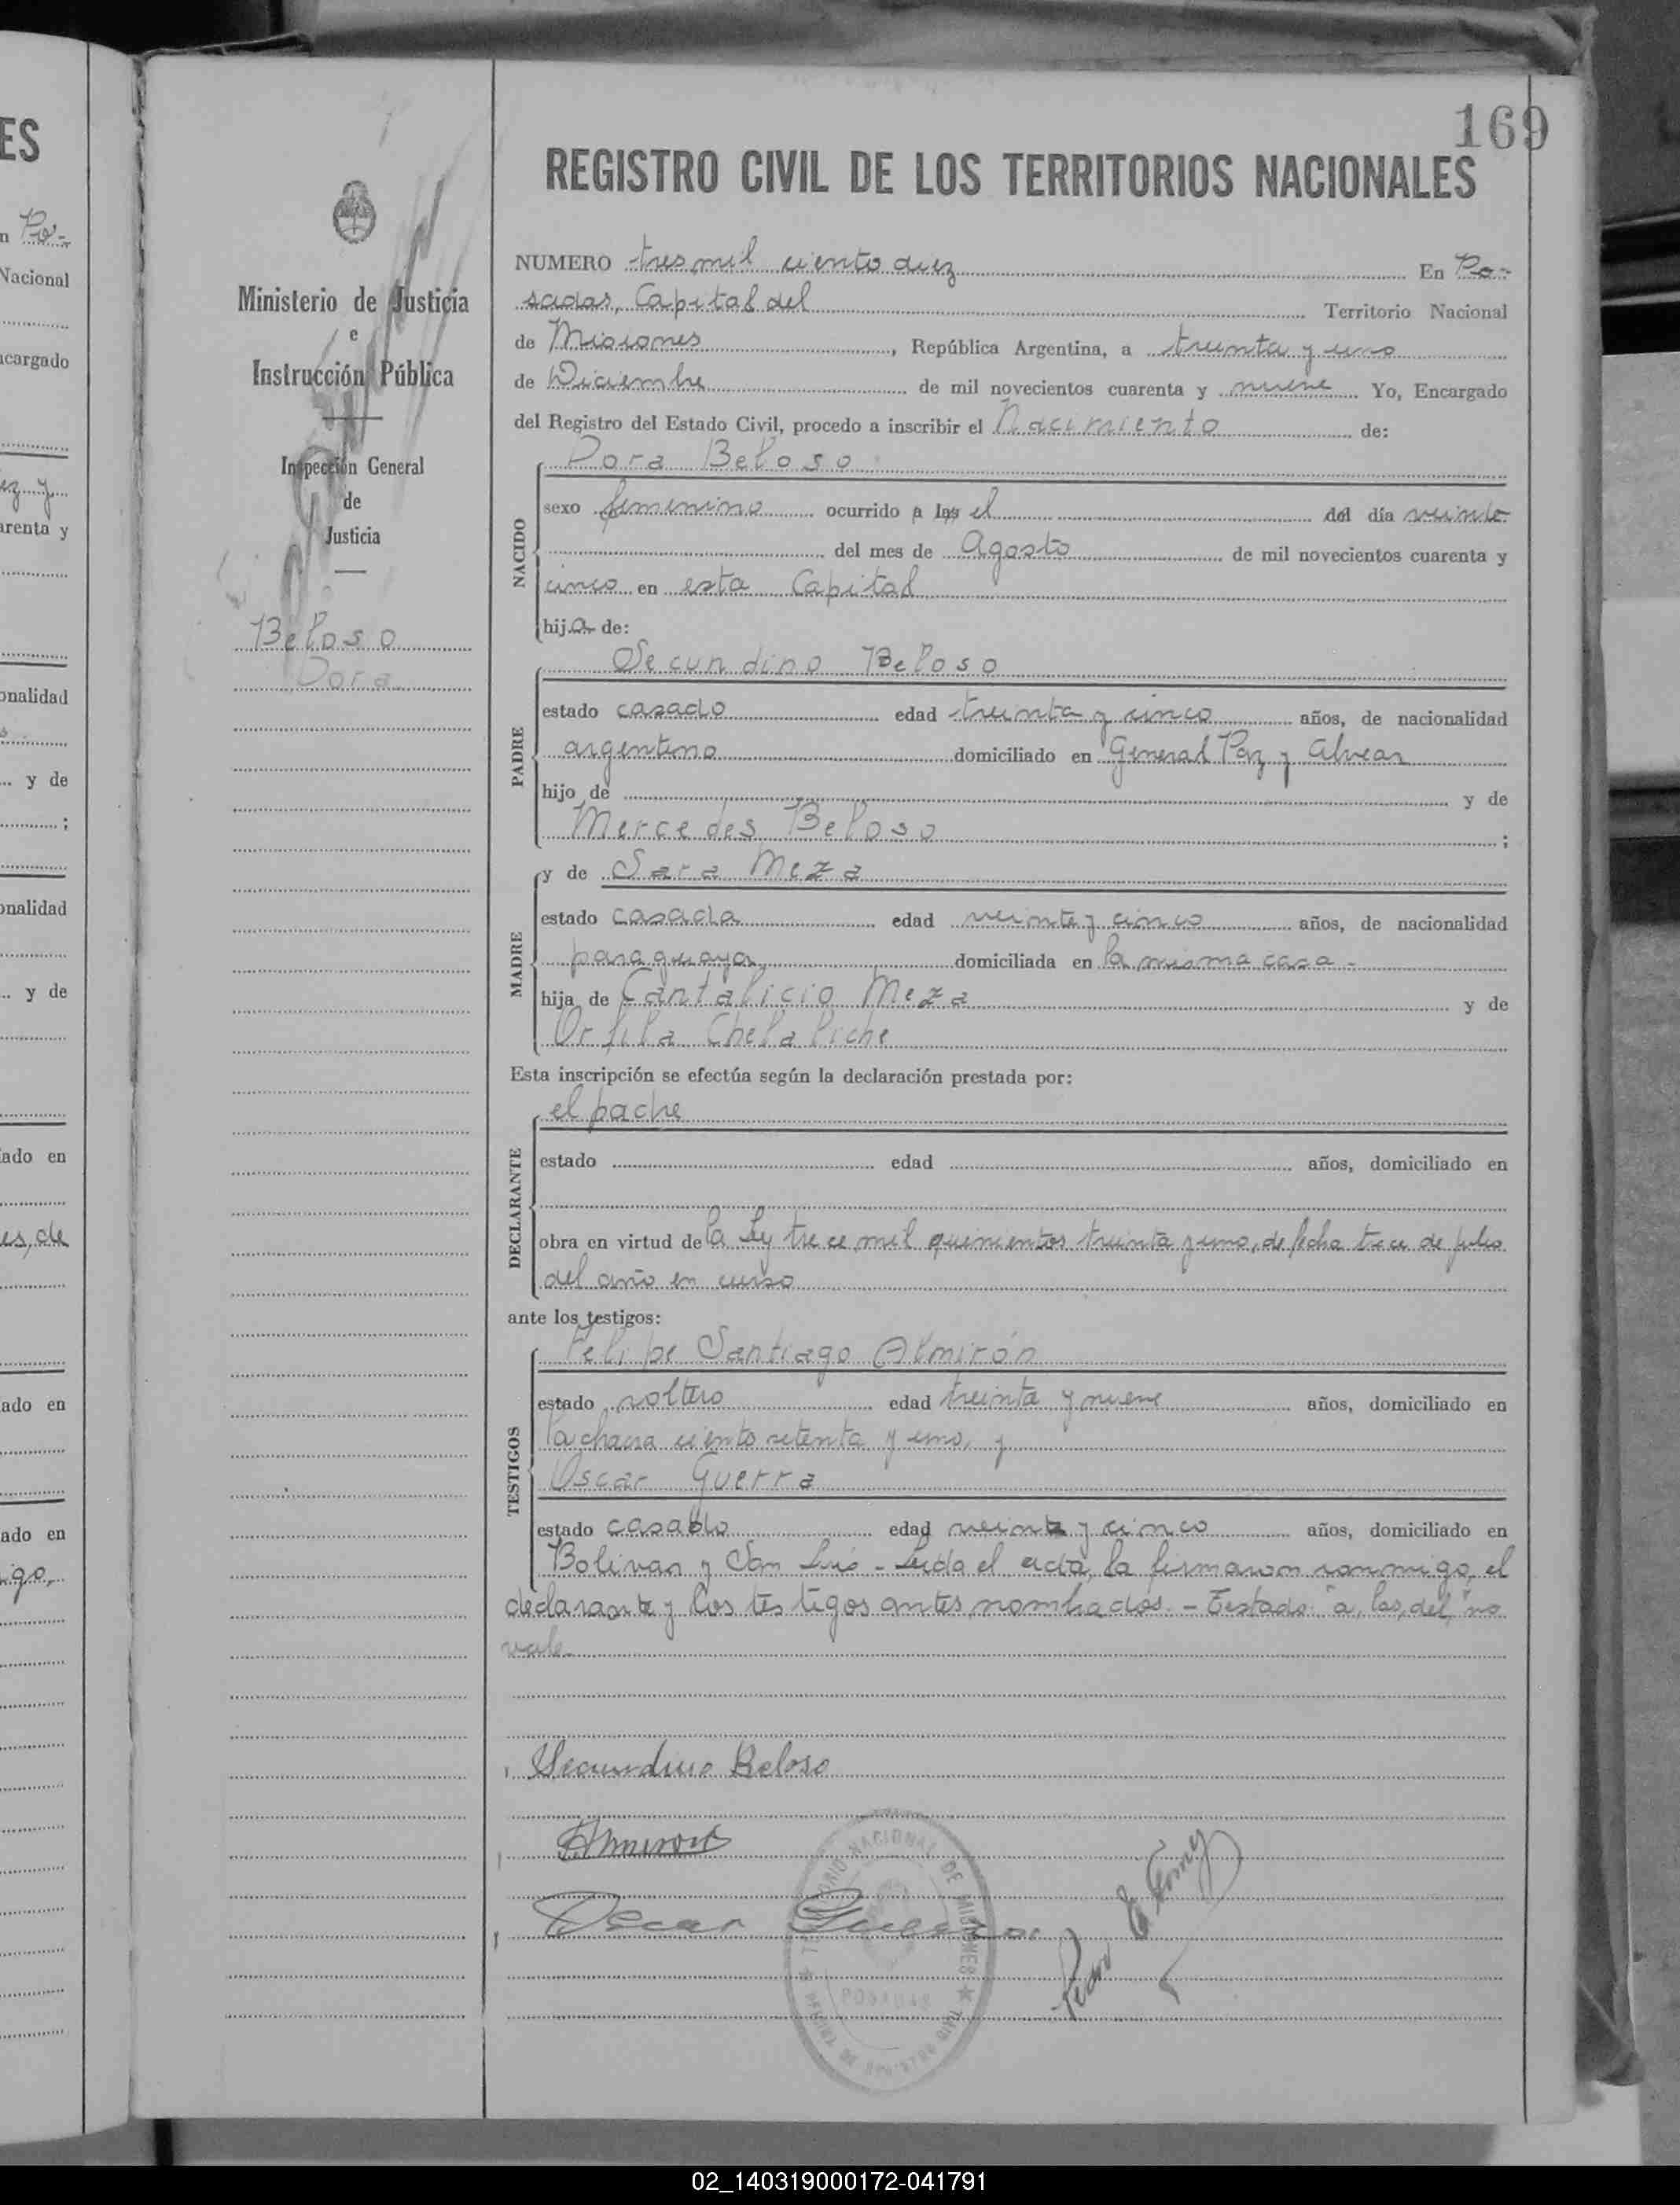 169
REGISTRO CIVIL DE LOS TERRITORIOS NACIONALES
Ministerio de Justicia
e
Instrucción Pública
Inspección General
de
Justicia
Beloso
Dora
NUMERO tres mil ciento diez En Po-
sadas, Capital del Territorio Nacional
de Misiones, República Argentina, a treinta y uno
de Diciembre de mil novecientos cuarenta y nueve Yo, Encargado
del Registro del Estado Civil, procedo a inscribir el Nacimiento de:
Dora Beloso
NACIDO
sexo femenino ocurrido a las el del día veinte
del mes de Agosto de mil novecientos cuarenta y
cinco en esta Capital
hija de:
PADRE
Secundino Beloso
estado casado edad treinta y cinco años, de nacionalidad
argentino domiciliado en General Paz y Alvear
hijo de y de
Mercedes Beloso ;
MADRE
y de Sara Meza
estado casada edad veinte y cinco años, de nacionalidad
paraguaya domiciliada en la misma casa -
hija de Cantalicio Meza y de
Orfila Chelaliche
Esta inscripción se efectúa según la declaración prestada por:
DECLARANTE
el padre
estado edad años, domiciliado en
obra en virtud de la Ley trece mil quinientos treinta y uno, de fecha trece de julio
del año en curso
ante los testigos:
TESTIGOS
Felipe Santiago Almirón
estado soltero edad treinta y nueve años, domiciliado en
la chacra ciento setenta y uno, y
Oscar Guerra
estado casado edad veinte y cinco años, domiciliado en
Bolivar y San Luis - Leida el acta, la firmaron conmigo, el
declarante y los testigos antes nombrados. - Testado: "a, las, del," no
vale.
Secundino Beloso
Almirón
Oscar Guerra
Pedro E. Gomez
TERRITORIO NACIONAL DE MISIONES
POSADAS
ES
n Po-
Nacional
cargado
ez y
arenta y
onalidad
y de
;
onalidad
y de
ado en
es, de
ado en
ado en
igo,
02_140319000172-041791